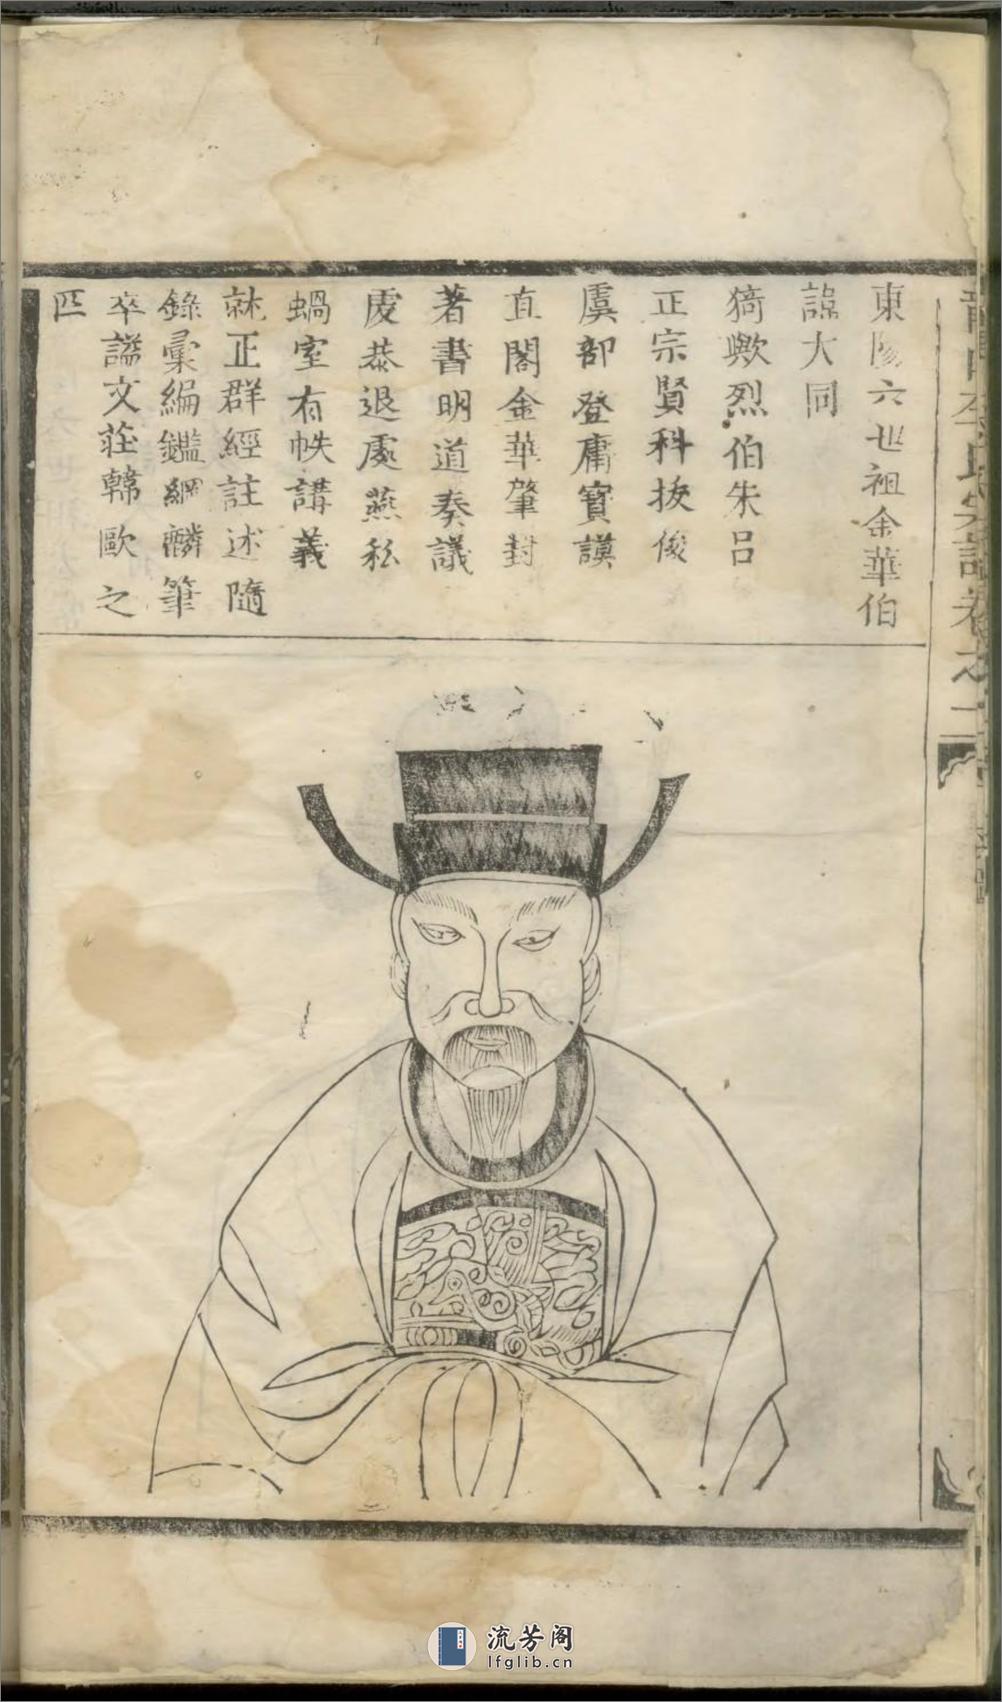 東陽六世祖金華伯
諱大同
猗歟烈伯朱呂
正宗賢科挍俊
虞部登庸寳謨
直閣金華肇封
著書明道奏議
虔恭退處燕私
蝸室有帙講義
就正群經註述隨
錄彙編鑑綱麟筆
卒謚文莊韓歐之
匹
李氏宗譜卷之一
流芳阁
lfglib.cn